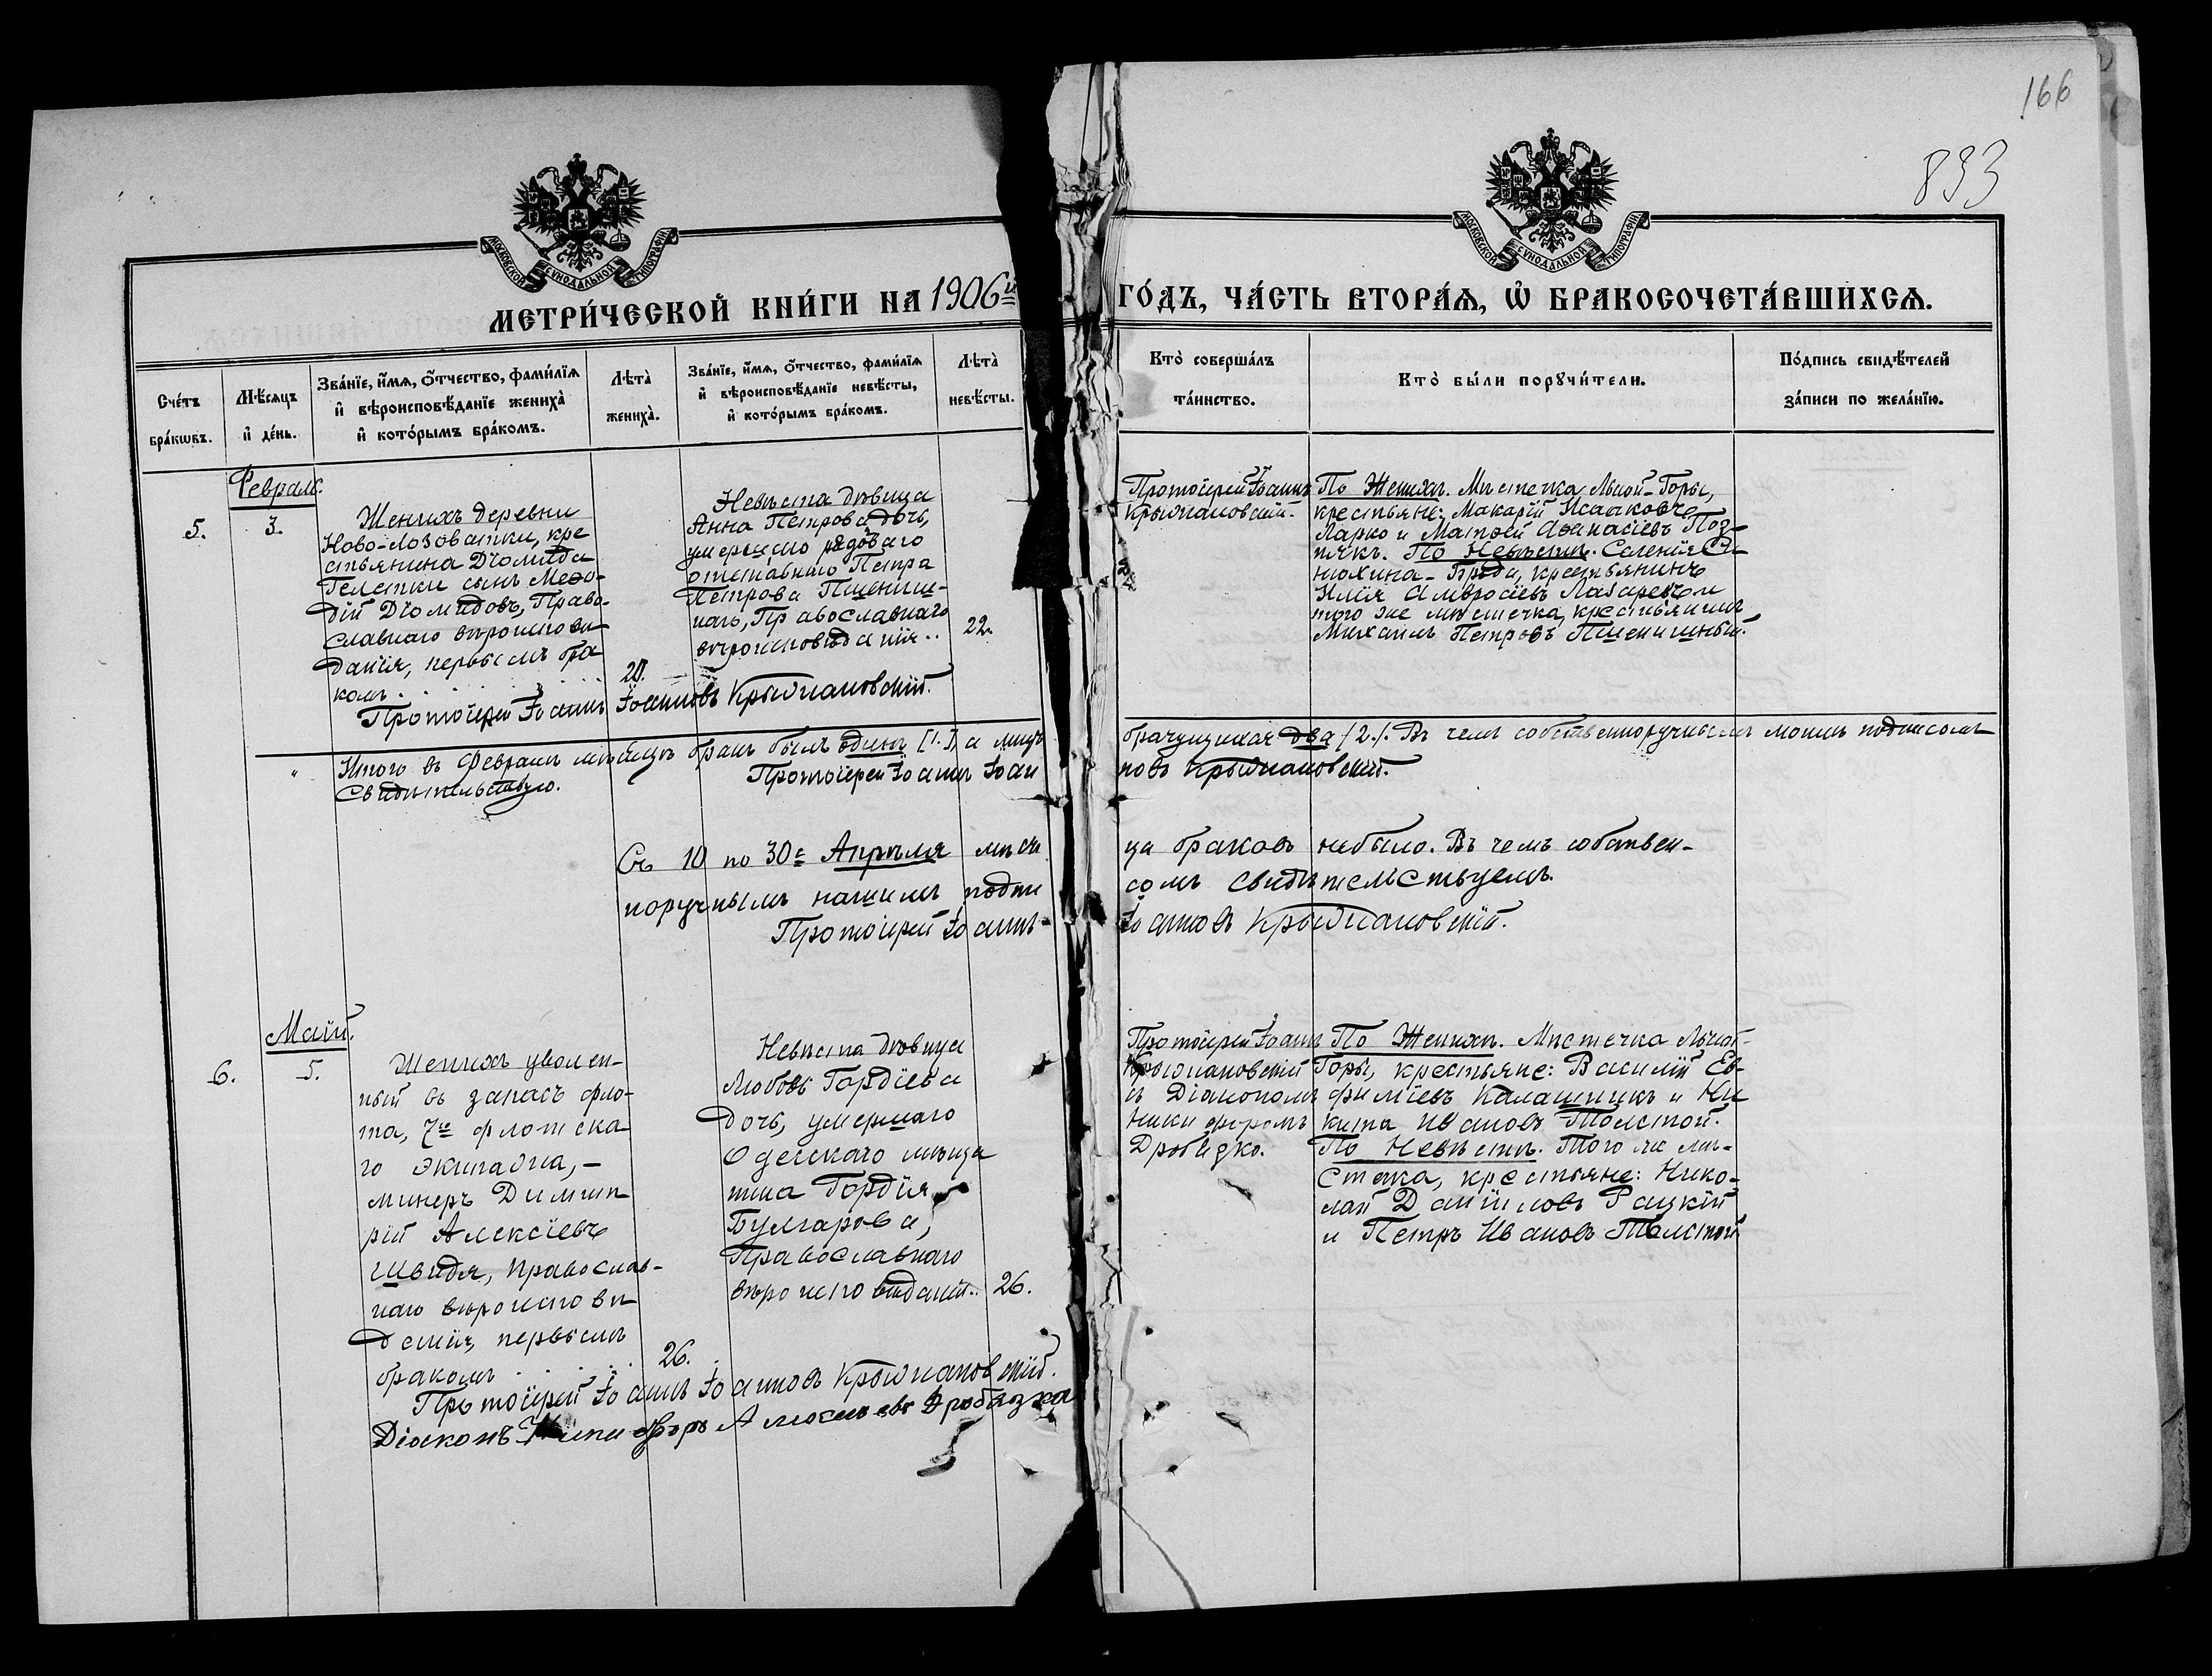 166
893
МОСКОВСКОЙ СѴНОДАЛЬНОЙ ТИПОГРАФІИ
МОСКОВСКОЙ СѴНОДАЛЬНОЙ ТИПОГРАФІИ
МЕТРИ́ЧЕСКОЙ КНИ́ГИ НА 1906й
ГО́ДЪ, ЧА́СТЬ ВТОРА́Я, Ѡ҆ БРАКОСОЧЕТА́ВШИХСЯ.
Сче́тъ
бра́кѡвъ.
Мѣ́сяцъ
и҆ де́нь.
Зва́нїе, и҆́мя, ѻ҆́тчество, фами́лїя
и҆ вѣроисповѣ́данїе жениха̀
и҆ кото́рымъ бра́комъ.
Лѣта̀
жениха̀.
Зва́нїе, и҆́мя, ѻ҆́тчество, фами́лїя
и҆ вѣроисповѣ́данїе невѣ́сты,
и҆ кото́рымъ бра́комъ.
Лѣта̀
невѣ́сты.
Кто̀ соверша́лъ
та́инство.
Кто̀ бы́ли порꙋчи́тели.
По́дпись свидѣ́телей
за́писи по жела́нїю.
5.
Февраль.
3.
Женихъ деревни
Ново-Лозоватки, кре
стьянина Діомида
Телетки сынъ Меѳо-
дій Діомидовъ, Право-
славнаго вѣроисповѣ-
данія, первымъ бра
комъ . . . . . .
20.
Невѣста дѣвица
Анна Петрова дочь,
умершаго рядоваго
отставнаго Петра
Петрова Пшениш-
наго, Православнаго
вѣроисповѣданія..
22.
Протоіерей Іоаннъ Іоанновъ Крыжановскій.
Протоіерей Іоаннъ
Крыжановскій.
По Женихѣ. Мѣстечка Лысой-Горы,
крестьяне: Макарій Исааковъ
Ларко и Матѳей Аѳанасіевъ Поз-
някъ. По Невѣстѣ. Селенія Си-
нюхина-Брода, крестьянинъ
Илія Амвросіевъ Лазаревъ и
того же мѣстечка, крестьянинъ
Михаилъ Петровъ Пшенишный.
" Итого въ Февралѣ мѣсяцѣ бракъ былъ одинъ [1.], а лицъ
брачущихся два /2./. Въ чемъ собственноручнымъ моимъ подписомъ
Свидѣтельствую.
Протоіерей Іоаннъ Іоан
новъ Крыжановскій.
Съ 10 по 30е Апрѣля мѣся
ца браковъ небыло. Въ чемъ собствен-
норучнымъ нашимъ подпи
сомъ свидѣтельствуемъ.
Протоіерей Іоаннъ-
Іоанновъ Крыжановскій.
Май.
6.
5.
Женихъ уволен-
ный въ запасъ фло-
та, 7го флотска
го экипажа,-
минеръ Димит
рій Алексіевъ
Швидя, Православ-
наго вѣроисповѣ
данія, первымъ
бракомъ . . . .
26.
Невѣста дѣвица
Любовь Гордіева
дочь, умершаго
Одесскаго мѣща
нина Гордія
Булгарова,
Православнаго
вѣроисповѣданія..
26.
Протоіерей Іоаннъ Іоанновъ Крыжановскій.
Діаконъ Никифоръ Дробязко
Протоіерей Іоаннъ
Крыжановскій
съ Діакономъ
Никифоромъ
Дробязко.
По Женихѣ. Мѣстечка Лысой-
Горы, крестьяне: Василій Ев-
фиміевъ Калашникъ и Ни
кита Ивановъ Толстой.
По Невѣстѣ. Того же мѣ-
стечка, крестьяне: Нико-
лай Даніиловъ Рацкій
и Петръ Ивановъ Толстой